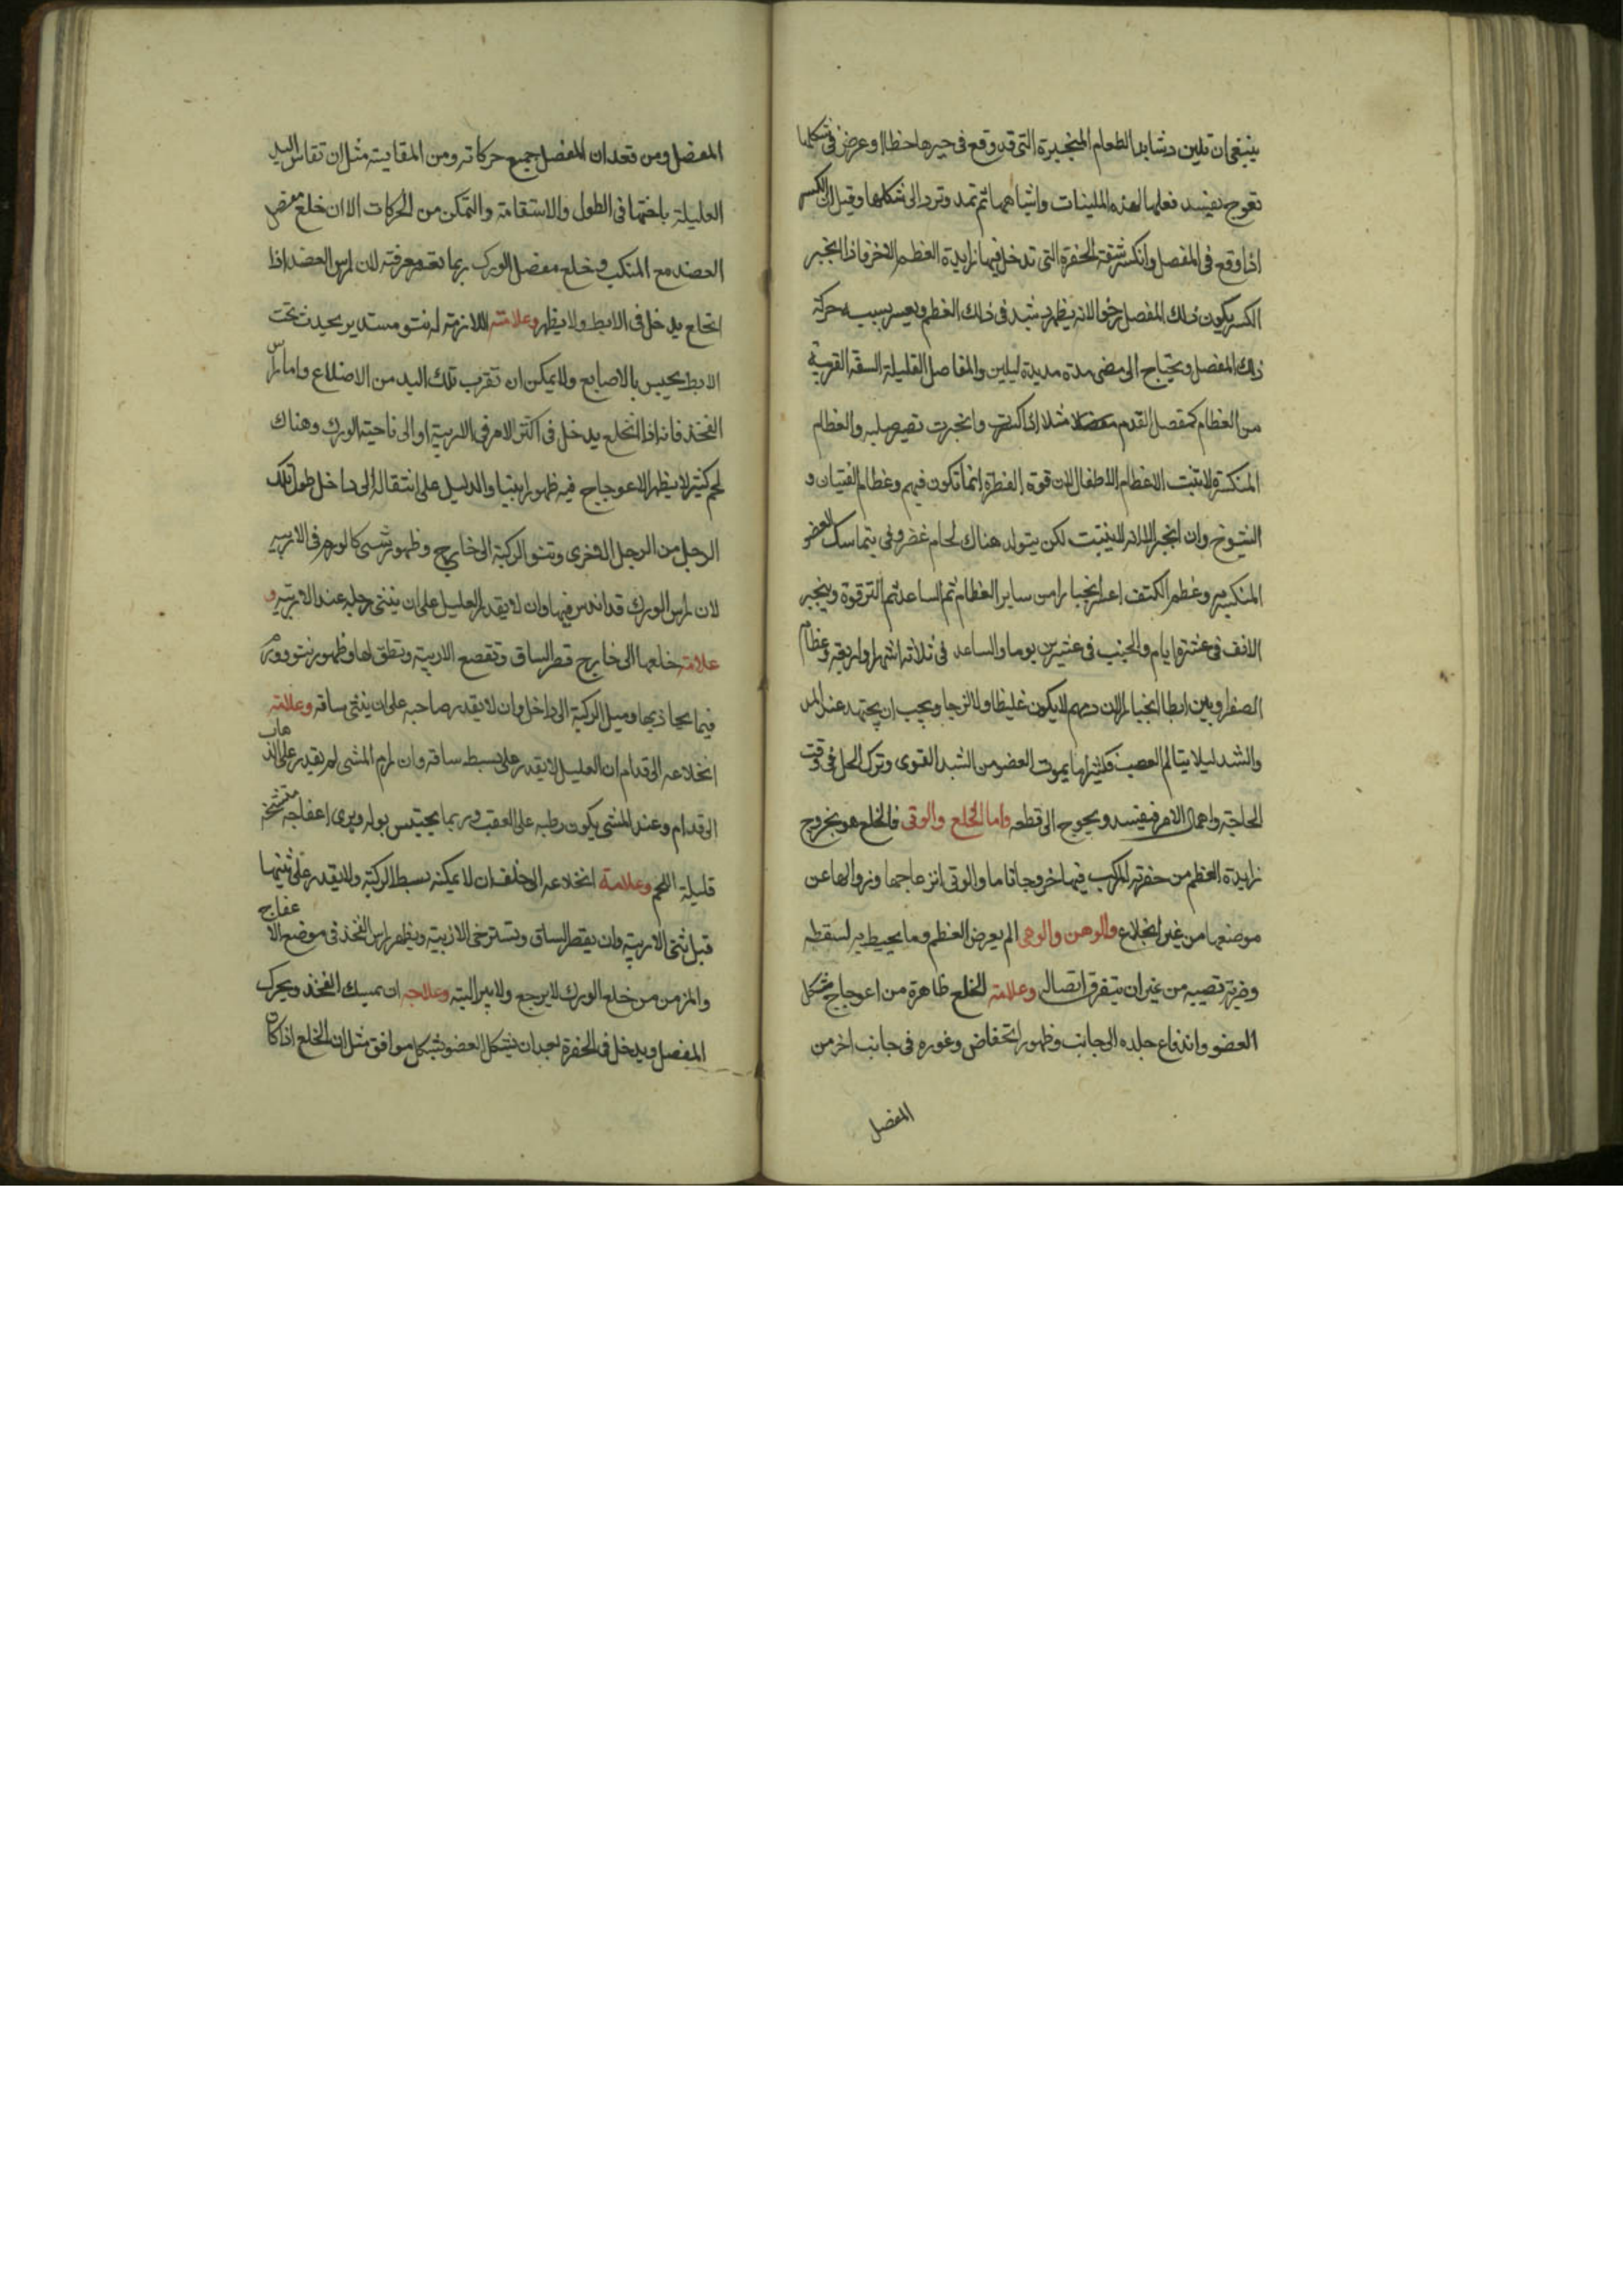 ينبغى ان تلين دشابد العظام المنجبرة التى قد وقع فى جبرها خطا او عرض فى شكلها
تعوج يفسد فعلها لهذه الملينات واشباهها ثم تمد وترد الى شكلها وقيل ان الكسر
اذا وقع فى المفصل وانكسر شفة الحفرة التى تدخل فيها زايدة العظم الاخر فاذا انجبر
الكسر يكون ذلك المفصل رخوا لانه يظهر دشبد فى ذلك العظم ويعسر بسببه حركة
ذلك المفصل ويحتاج الى مضى مدة مديدة ليلين والمفاصل القليلة القريبة
من العظام كمفصل القدم مثلا اذا انكسرت وانجبرت تصير صلبه والعظام
المنكسرة لا تنبت الا عظام الاطفال لان قوة الفطرة انما تكون فيهم وعظام الفتيان و
الشيوخ وان انجبر الا انه لا ينبت لكن يتولد هناك لحام غضروفى يتماسك العضو
المنكسر به وعظم الكتف اعسر انجبارا من ساير العظام ثم الساعد ثم الترقوة وينجبر
الانف فى عشرة ايام والجنب فى عشرين يوما والساعد فى ثلاثة اشهر او اربعة وعظام
لان دمهم لا يكون غليظا ولا لزجا ويجب ان يجتهد عند المد
والشد ليلا يتالم العصب فكثيرا ما يموت العضو من الشد القوى وترك الحل فى وقت
الحاجة واهمال الامر فيفسد ويحوج الى قطعه واما الخلع والوثى فالخلع هو بخروج
زايدة العظم من حفرته المركب فيها خروجا تاما والوثى انزعاجها وزوالها عن
موضعها من غير انخلاع والوهن والوهى الم يعرض العظم وما يحيط به لسقطه
وضربة تصيبه من غير ان يتفرق اتصاله وعلامة الخلع ظاهرة من اعوجاج شكل
العضو واندفاع جلده الى جانب وظهور انخفاض وغوره فى جانب اخر من
المفصل
المفصل ومن فقدان المفصل جميع حركاته ومن المقايسة مثل ان تقاس اليد
العليلة باختها فى الطول والاستقامة والتمكن من الحركات الا ان خلع مفصل
العضد مع المنكب وخلع مفصل الورك ربما تعسر معرفته لان راس العضد اذا
انخلع يدخل فى الابط ولا يظهر وعلامته اللازمة له نتو مستدير يحدث تحت
الابط يحس بالاصابع ولا يمكن ان تقرب تلك اليد من الاضلاع واما راس
الفخذ فانه اذا انخلع يدخل فى اكثر الامر فى الاربية او الى ناحية الورك وهناك
لحم كثير لا يظهر الاعوجاج فيه ظهورا بينا والدليل على انتقاله الى داخل طول تلك
الرجل من الرجل الاخرى وتنو الركبة الى خارج وظهور شى كالورم فى الاربيه
لان راس الورك قد اندس فيها وان لا يقدر العليل على ان يثنى رجله عند الاربية و
علامة خلعها الى خارج قصر الساق وتقصع الاربية وظهور نتو وورم
فيما يحاذيها وميل الركبة الى داخل وان لا يقدر صاحبه على ان يثنى ساقه وعلامة
انخلاعه الى قدام ان العليل لا يقدر على بسط ساقه وان رام المشى لم يقدر على الذهاب
الى قدام وعند المشى يكون وطيه على العقب وربما يحتبس بوله ويرى اعفاجه متشنجة
قليلة اللحم وعلامة انخلاعه الى خلف ان لا يمكنه بسط الركبة ولا يقدر على ثنيها
قبل ثنى الاربية وان يقصر الساق وتسترخى الاربية ويظهر راس الفخذ فى موضع الاعفاج
والمزمن من خلع الورك لا يرجع ولا يبرا البتة وعلاجه ان يمسك الفخذ ويحرك
المفصل ويدخل فى الحفرة بعد ان يشكل العضو بشكل موافق مثل ان الخلع اذا كان